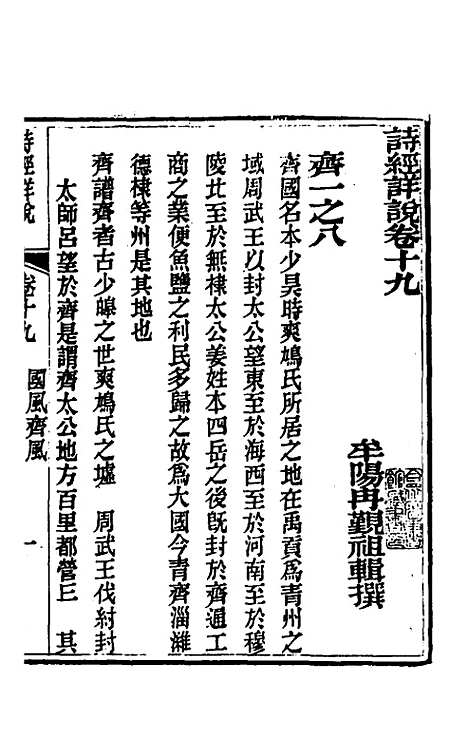 詩經詳說卷十九
牟陽冉覲祖輯撰
齊一之八
齊國名本少昊時爽鳩氏所居之地在禹貢為青州之
域周武王以封太公望東至於海西至於河南至於穆
陵北至於無棣太公姜姓本四岳之後既封於齊通工
商之業便魚鹽之利民多歸之故為大國今青齊淄濰
德棣等州是其地也
齊譜齊者古少皞之世爽鳩氏之墟　周武王伐紂封
太師呂望於齊是謂齊太公地方百里都營丘　其
詩經詳說
卷十九
國風齊風
一